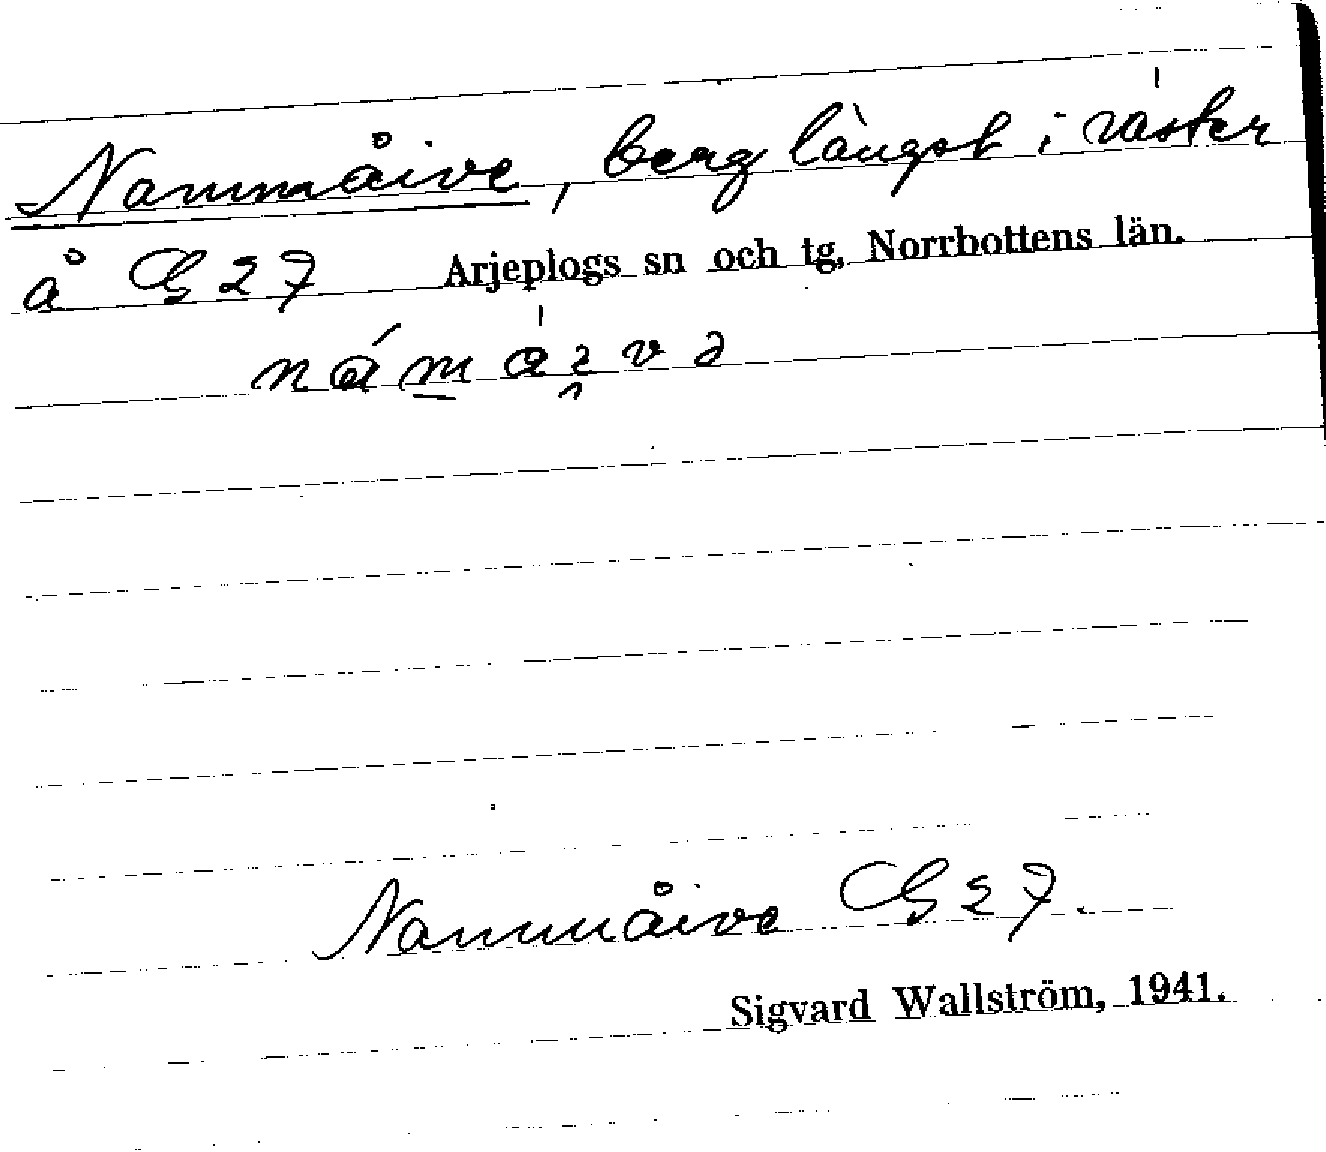 Nammåive, berg längst i väster
å G 27 Arjeplogs sn och tg, Norrbottens län.
Nammåive G 27.
Sigvard Wallström, 1941.